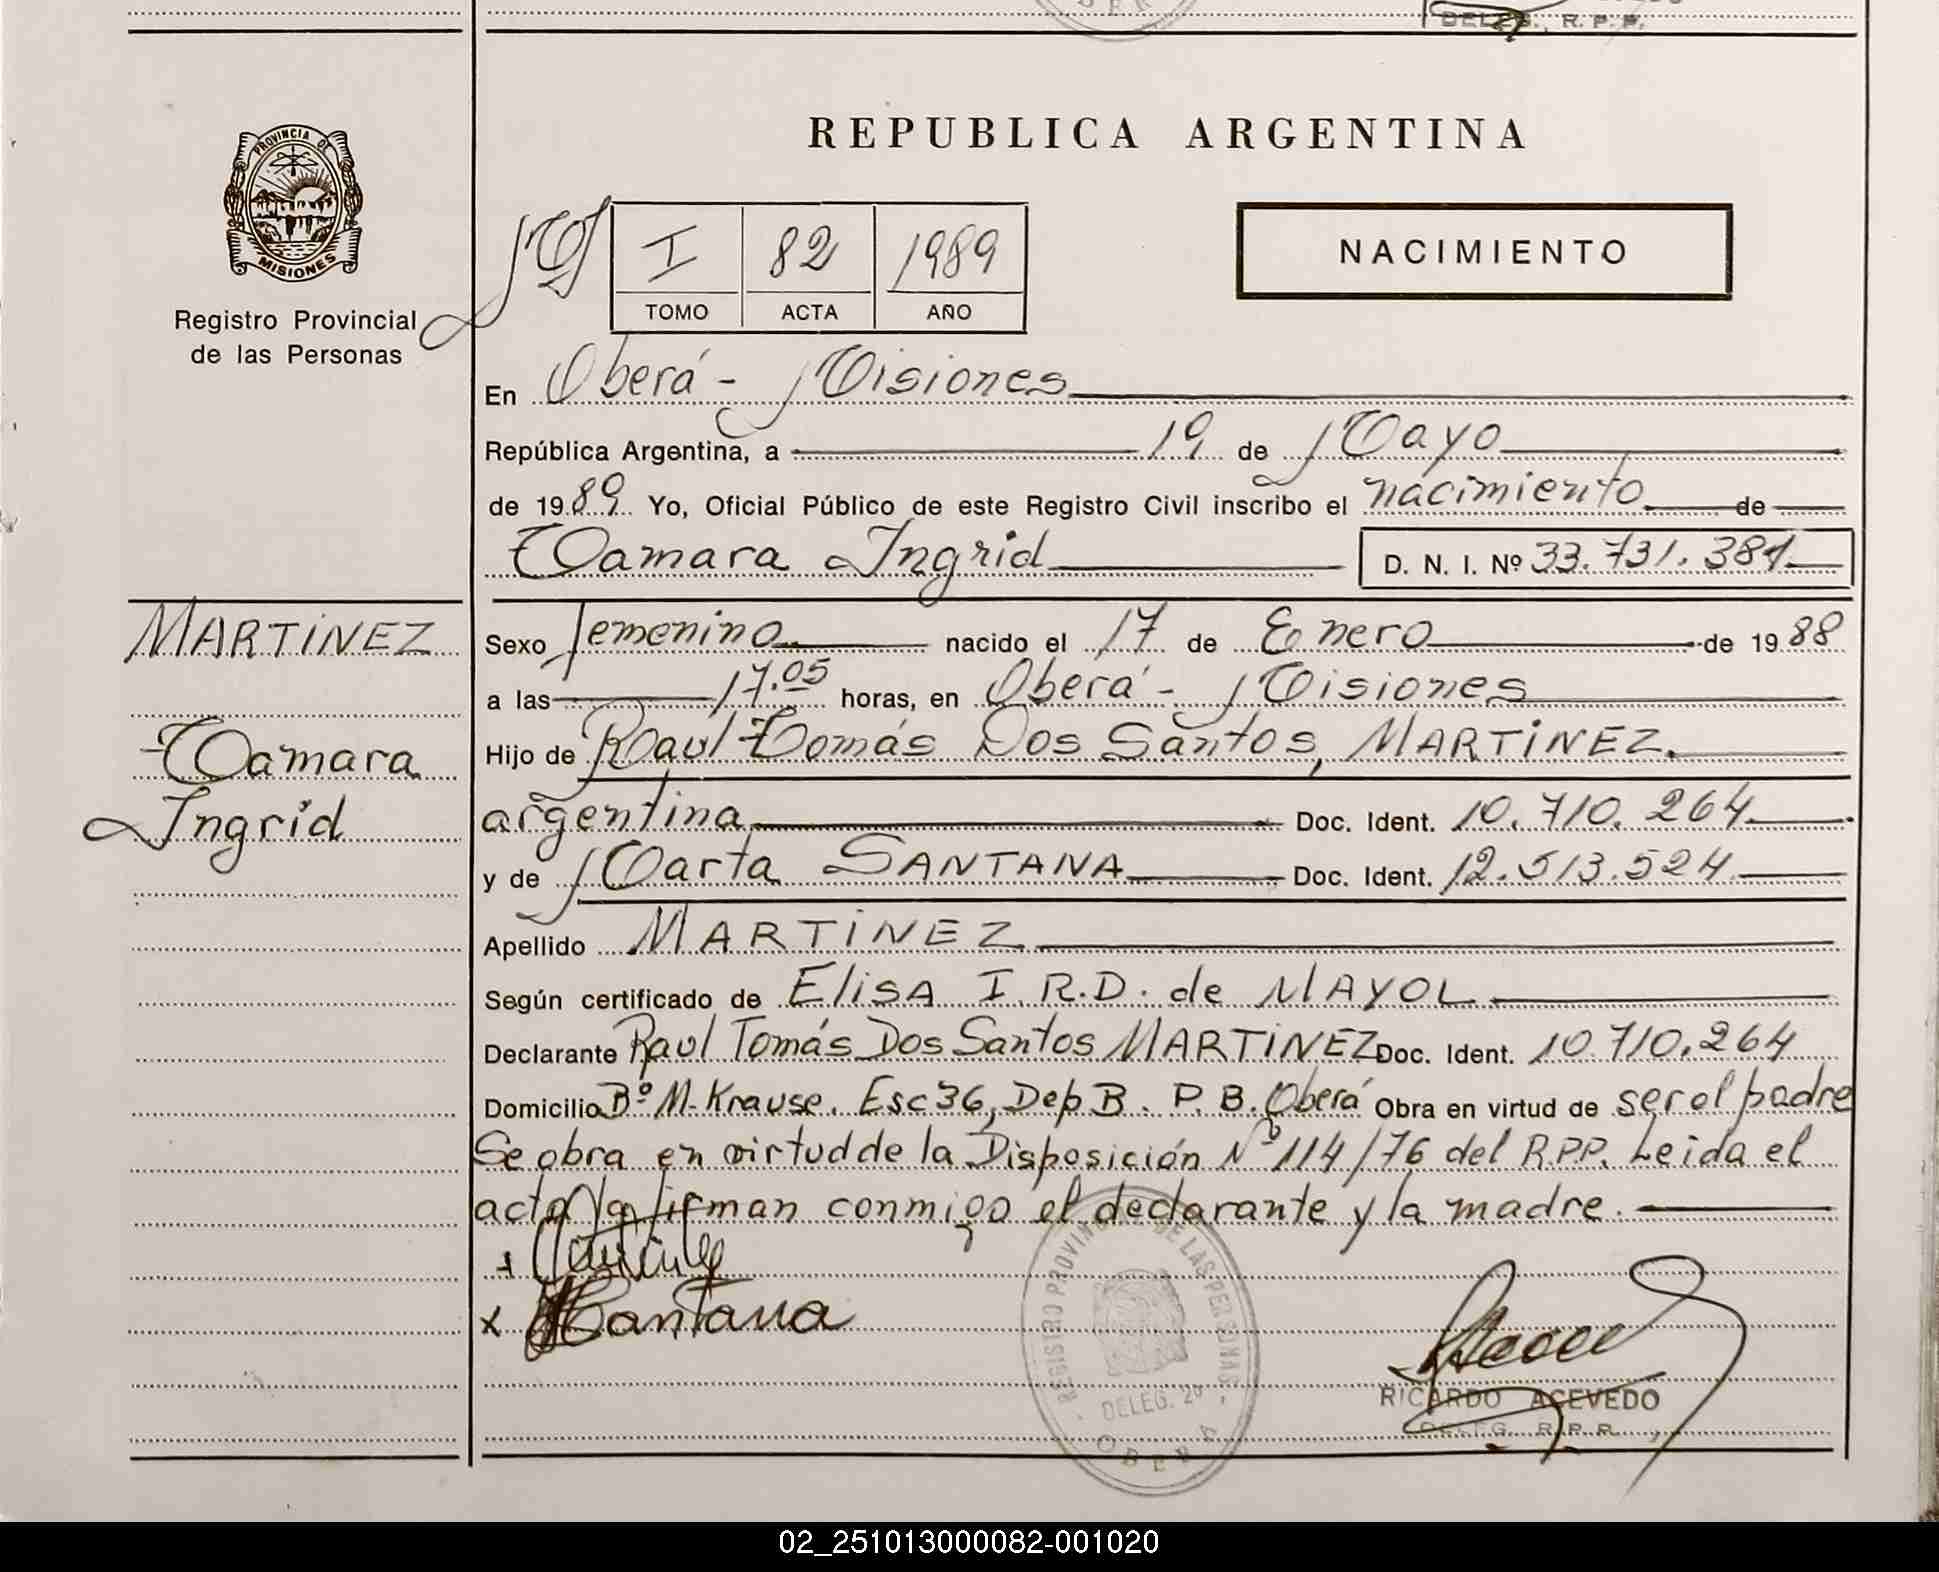 DELEG. R. P. P.
REPUBLICA ARGENTINA
PROVINCIA DE
MISIONES
Registro Provincial
de las Personas
I 82 1989
TOMO ACTA AÑO
NACIMIENTO
En Oberá - Misiones
República Argentina, a 19 de Mayo
de 1989 Yo, Oficial Público de este Registro Civil inscribo el nacimiento de
Tamara Ingrid D. N. I. Nº 33.731.381
MARTINEZ
Tamara
Ingrid
Sexo femenino nacido el 17 de Enero de 1988
a las 17.05 horas, en Oberá - Misiones
Hijo de Raul Tomás Dos Santos, MARTINEZ.
argentina Doc. Ident. 10.710.264
y de Marta SANTANA Doc. Ident. 12.513.524
Apellido MARTINEZ
Según certificado de ElisA I. R.D. de MAYOL
Declarante Raul Tomás Dos Santos MARTINEZ Doc. Ident. 10.710.264
Domicilio Bº M. Krause. Esc 36, Dep B. P. B. Oberá Obra en virtud de ser el padre
Se obra en virtud de la Disposición Nº 114/76 del R.P.P. Leida el
acta la firman conmigo el declarante y la madre.
x Santana
REGISTRO PROVINCIAL DE LAS PERSONAS
DELEG. 2ª
OBERA
RICARDO ACEVEDO
DELEG. R. P. P.
02_251013000082-001020